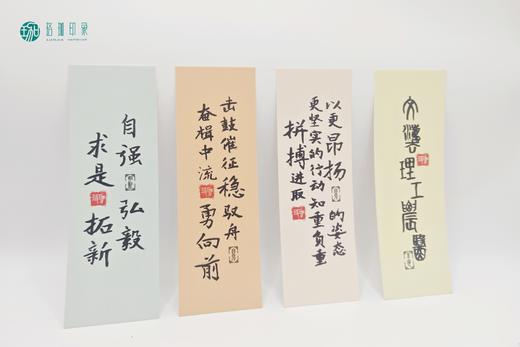 珞珈印象
自强弘毅
求是拓新
击鼓催征稳驭舟
奋楫中流勇向前
以更昂扬的姿态
更坚实的行动知重负重
拼搏进取
文灋理工農醫